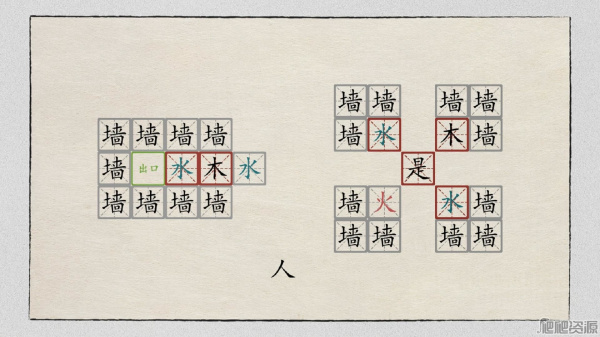 墙墙墙墙
墙出口水木水
墙墙墙墙
墙墙 墙墙
墙水 木墙
是
墙火 水墙
墙墙 墙墙
人
爬爬资源